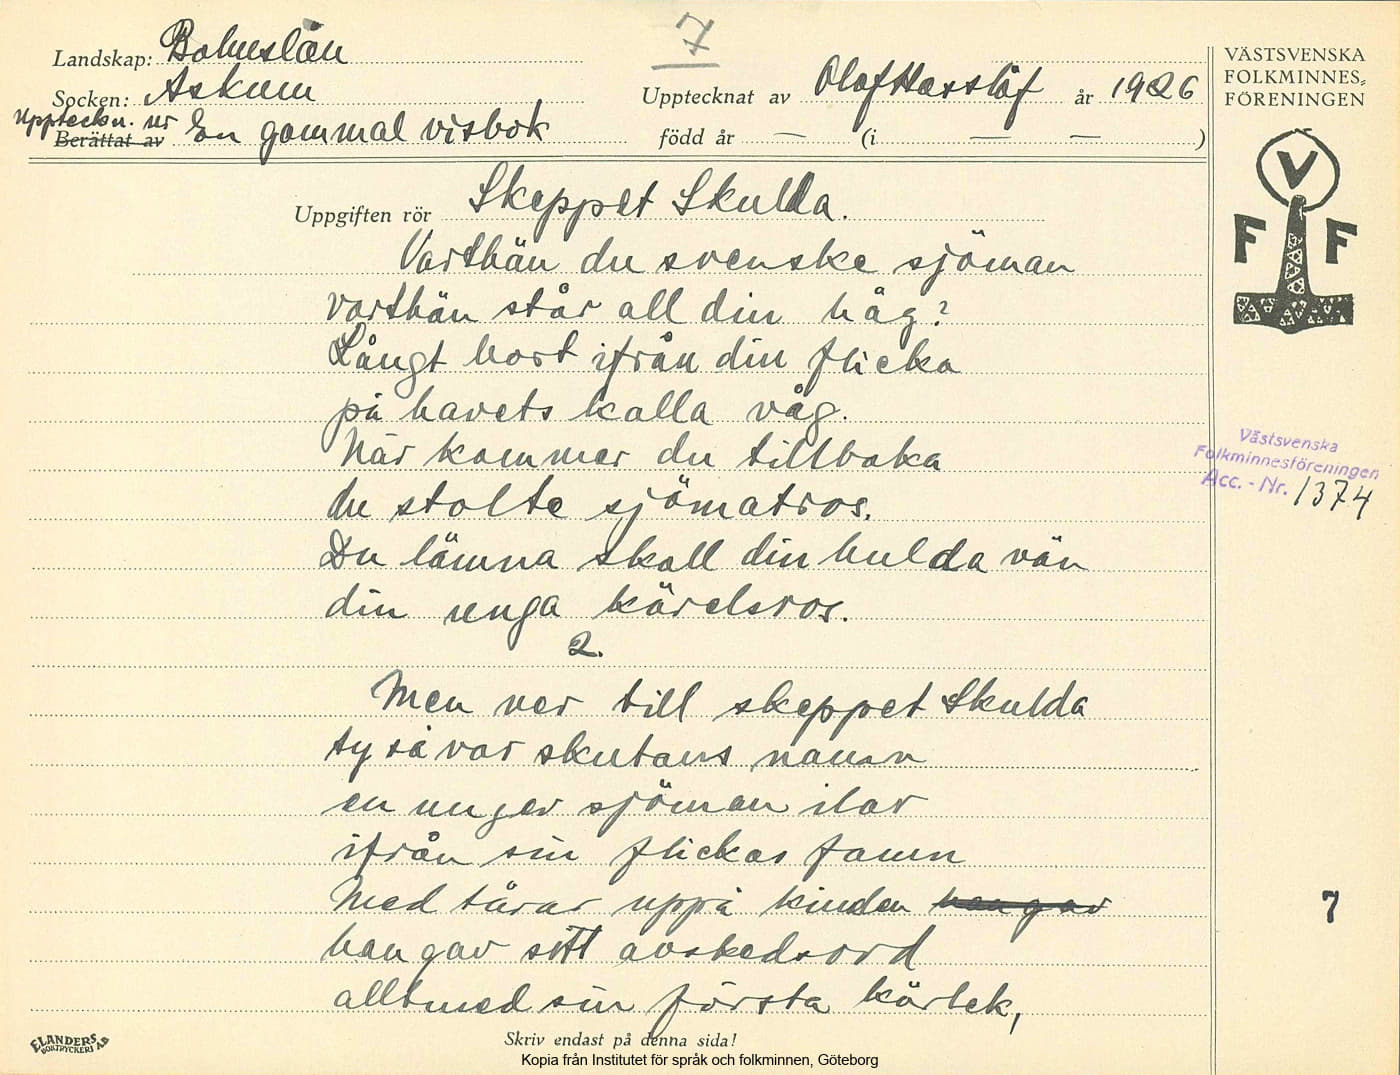 7
Landskap: Bohuslän
Socken: Askum
Uppteckn. ur
Berättat av En gammal visbok
Upptecknat av Olof Hasslöf år 1926
född år — (i — — )
VÄSTSVENSKA
FOLKMINNES=
FÖRENINGEN
V
F F
Uppgiften rör Skeppet Skulda.
Varthän du svenske sjöman
varthän står all din håg?
Långt bort ifrån din flicka
på havets kalla våg.
När kommer du tillbaka
du stolte sjömatros.
Du lämna skall din hulda vän
din unga kärelsros.
2.
Men ner till skeppet Skulda
ty så var skutans namn
en unger sjöman ilar
ifrån sin flickas famn
Med tårar uppå kinden han gav
han gav sitt avskedsord
allt med sin första kärlek,
Västsvenska
Folkminnesföreningen
Acc. - Nr. 1374
7
ELANDERS
BOKTRYCKERI AB
Skriv endast på denna sida!
Kopia från Institutet för språk och folkminnen, Göteborg